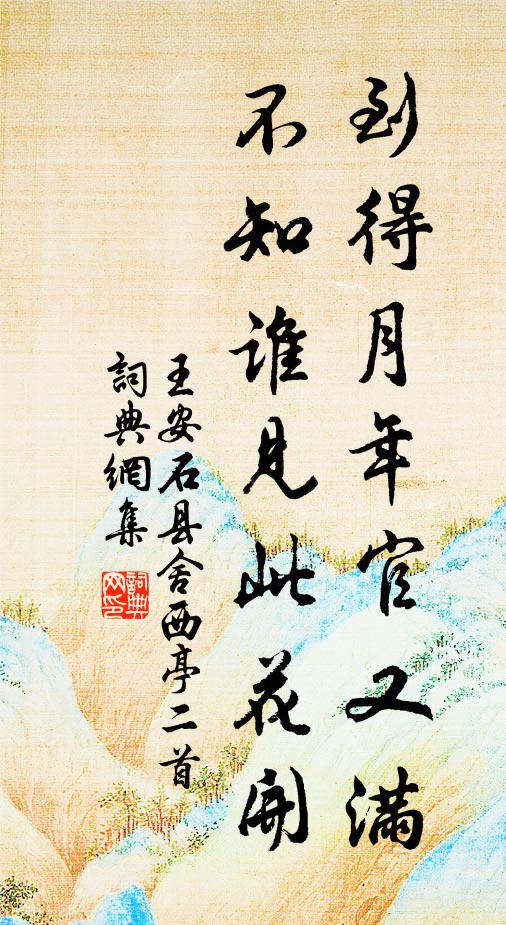 到得月年官又满
不知谁见此花開
王安石县舍西亭二首
詞典網集
詞典
网印